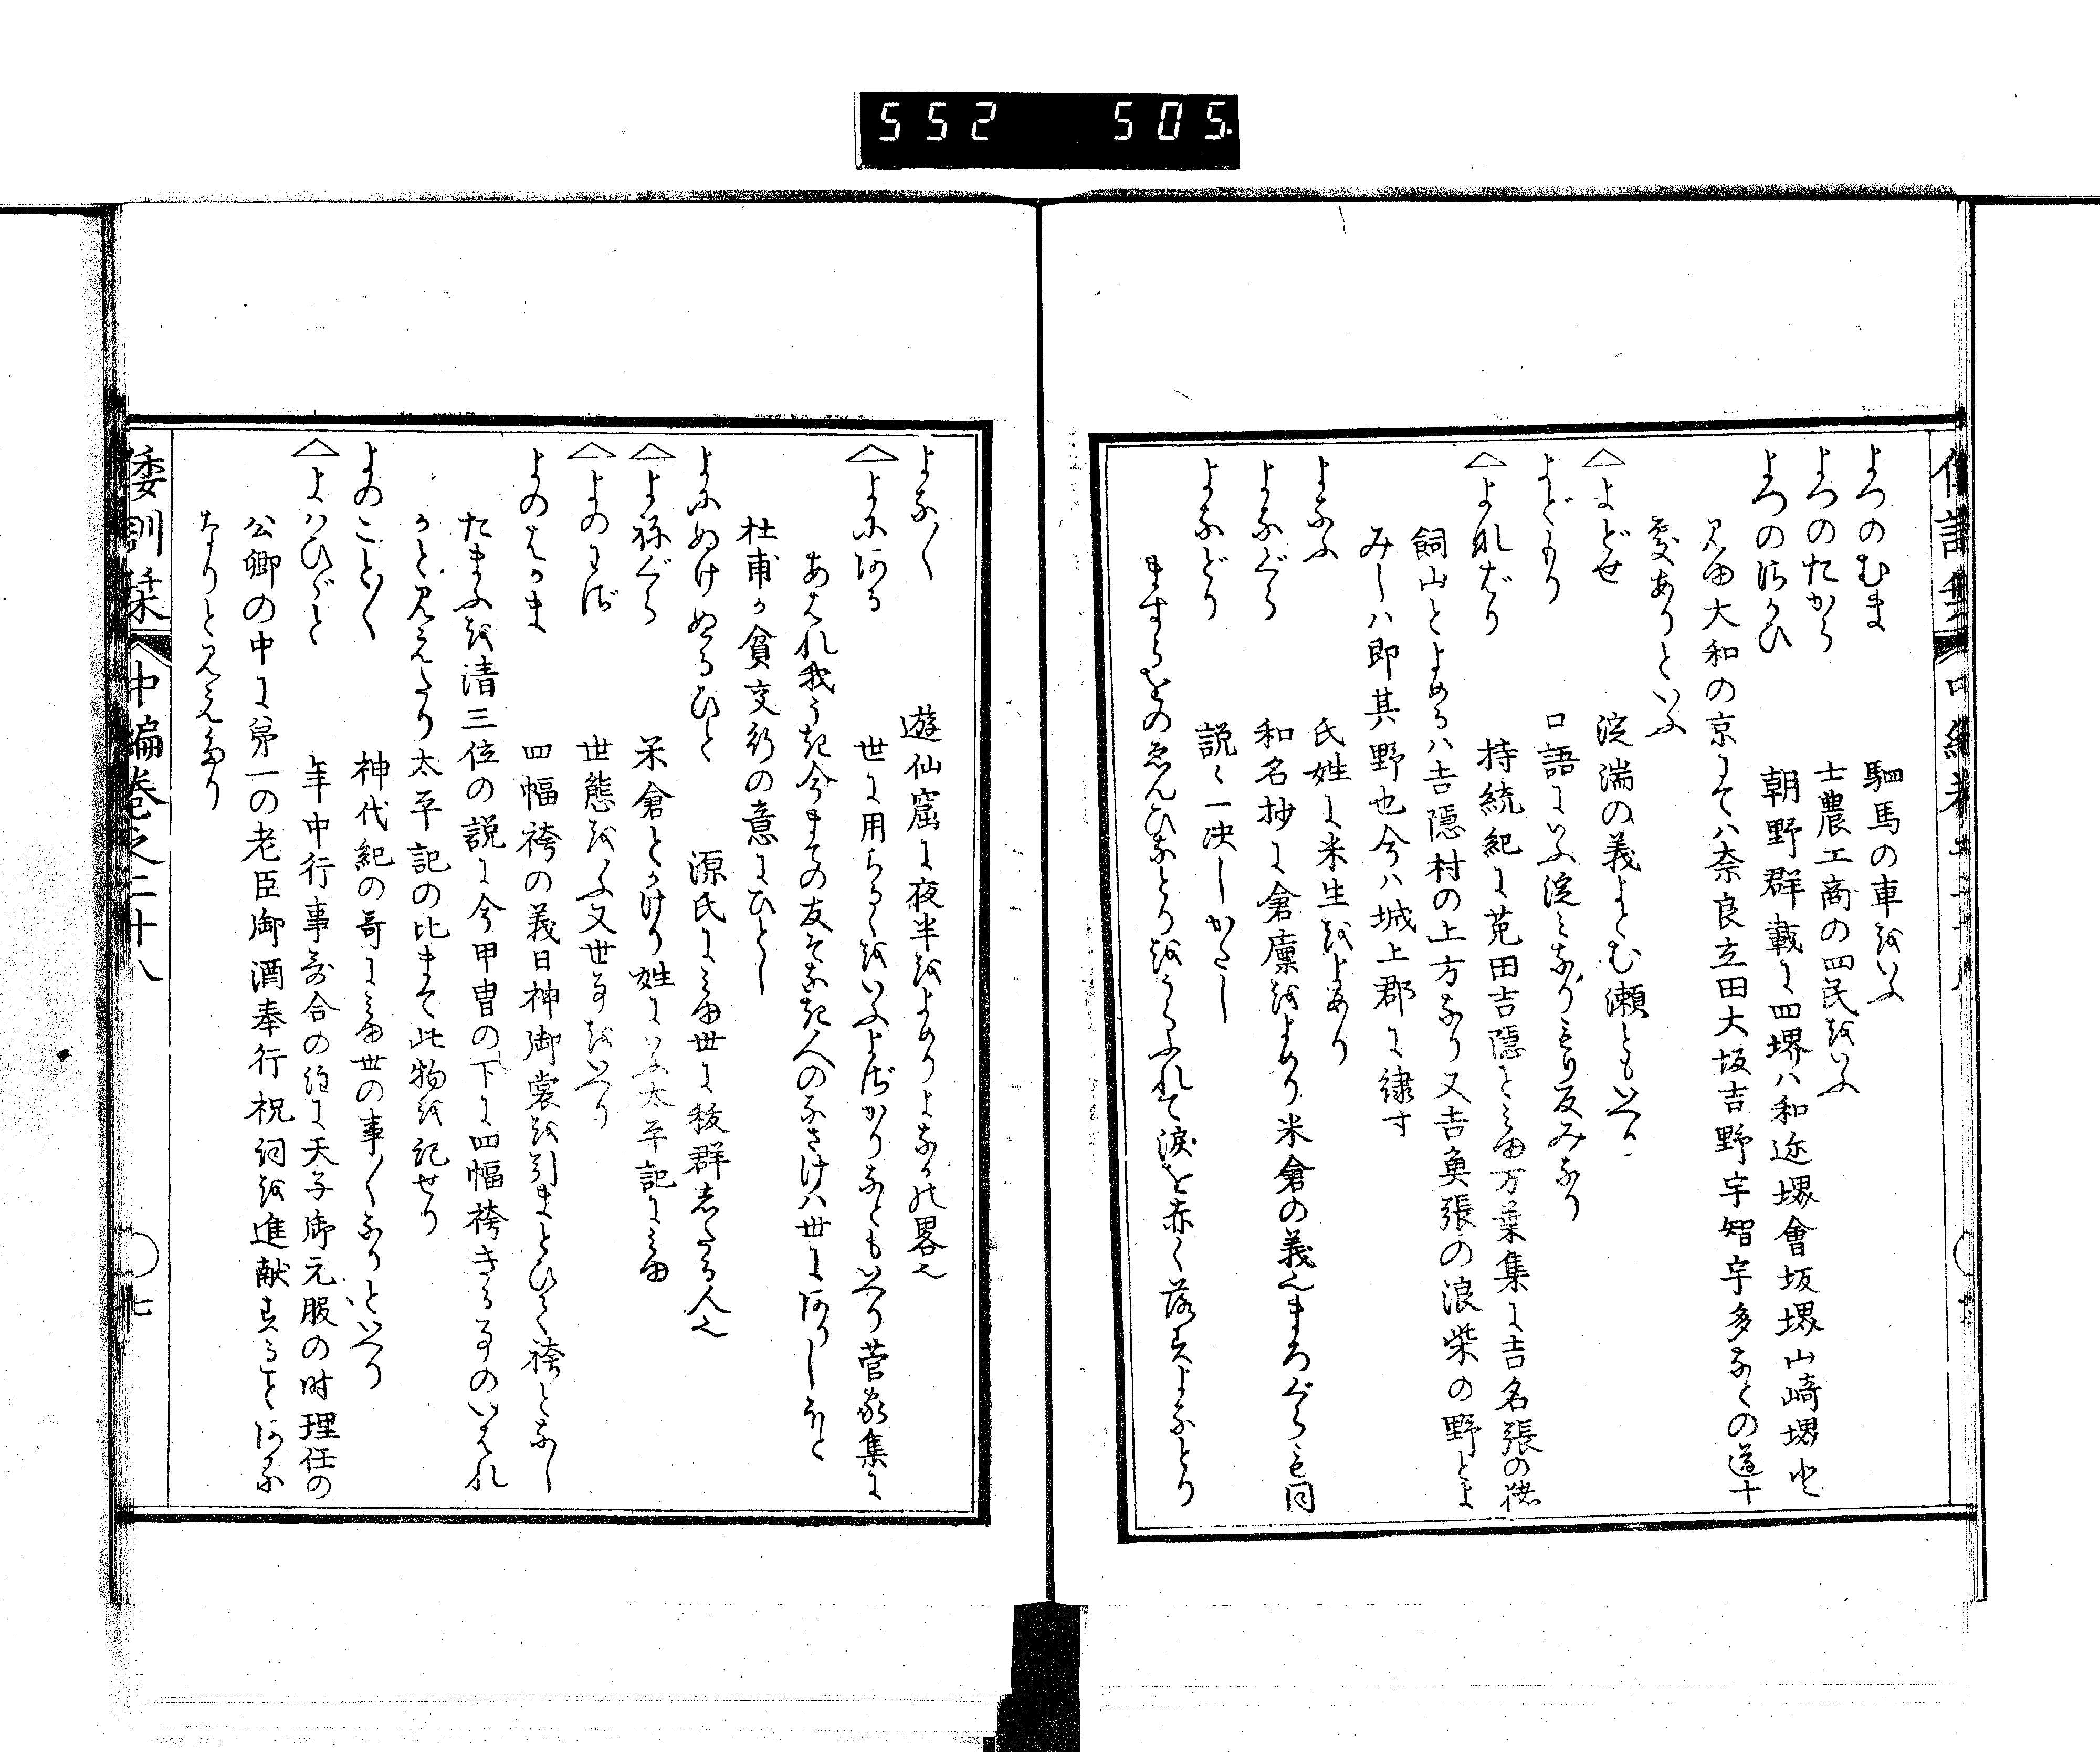 552 505
よつのむま 駟馬の車をいふ
よつのたから 士農工商の四民をいふ
よつのさかひ 朝野群載に四堺ハ和迩堺會坂堺山崎堺
見ゆ大和の京にてハ奈良立田大坂吉野宇智宇多などの道十
處ありといふ
△よどせ 淀湍の義よとむ瀬ともいへり
よどより 口語にいふ淀みなり
△よなばり 持統紀に菟田吉隠と見ゆ万葉集に吉名張の猪
飼山とよめるハ吉隠村の上方なり又吉魚張の浪柴の野とよ
みしハ即其野也今ハ城上郡に隷す
よなふ 氏姓に米生をよめり
よなぐら 和名抄に倉廩をよめり米倉の義也まろぐらも同
よなどり 説〻一决しかたし
ますらをのゑんひなとりをうらふれて涙を赤く落すよなとり
よな〱 遊仙窟に夜半をよめりよなかの畧也
△よにある 世に用らるゝをいふよにさかりなともいへり菅家集に
あはれ我うき今まての友そなき人のなさけハ世にありしほと
杜甫か貧交行の意にひとし
よにぬけぬるひと 源氏に見ゆ世に秡群したる人也
△よねぐら 米倉とかけり姓にいふ太平記に見ゆ
△よのわざ 世態をいふ又世事をいへり
よのはかま 四幅袴の義日神御裳を引まとひて袴となし
たまふを清三位の説に今甲冑の下に四幅袴きる事のいはれ
かと見えたり太平記の比まて此物を記せり
よのこと〲 神代紀の哥に見ゆ世の事〱なりといへり
△よハひごと 年中行事哥合の注に天子御元服の時理任の
公卿の中に第一の老臣御酒奉行祝詞を進献することある
なりと見えたり
倭訓栞 中編巻之二十八 ○七